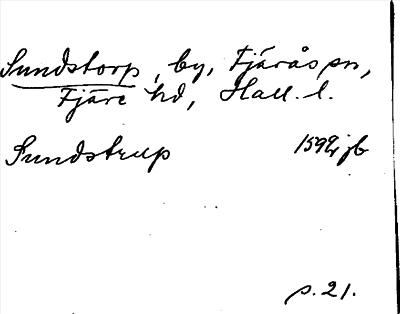 Sundstorp, by, Fjärås sn,
Fjäre hd, Hall. l.
Sundstrup 1592 jb
s. 21.